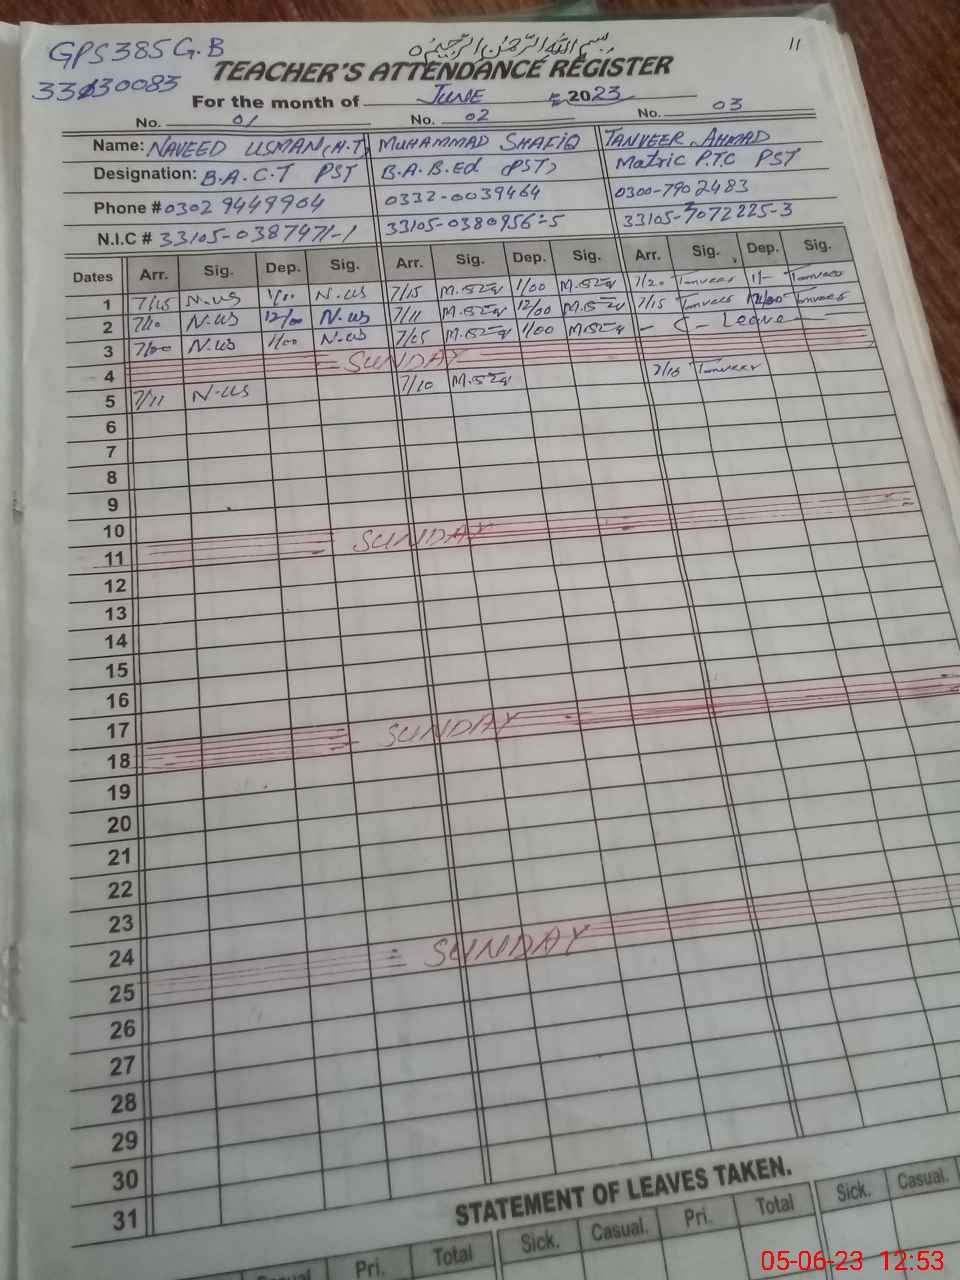 GPS 385 G.B
33130083
بِسْمِ اللهِ الرَّحْمٰنِ الرَّحِیْمِ
11
TEACHER'S ATTENDANCE REGISTER
For the month of JUNE 2023
No. 01 No. 02 No. 03
Name: NAVEED USMAN (H.T) MUHAMMAD SHAFIQ TANVEER AHMAD
Designation: B.A. C.T PST B.A. B.Ed (PST) Matric P.T.C PST
Phone # 0302 9449904 0332-0039464 0300-7902483
N.I.C # 33105-0387971-1 33105-0380956-5 33105-7072225-3
Dates Arr. Sig. Dep. Sig. Arr. Sig. Dep. Sig. Arr. Sig. Dep. Sig.
1 7/15 N.us 1/00 N.us 7/15 1/00 7/20 Tanveer Tanveer
2 7/10 N.us 12/00 N.us 7/11 12/00 7/15 Tanveer 12/00 Tanveer
3 7/00 N.us 1/00 N.us 7/15 1/00 - C - Leave
4 SUNDAY
5 7/11 N.us 7/10 7/16 Tanveer
6
7
8
9
10
11 SUNDAY
12
13
14
15
16
17
18 SUNDAY
19
20
21
22
23
24
25 SUNDAY
26
27
28
29
30
31
STATEMENT OF LEAVES TAKEN.
Casual. Pri. Total Sick. Casual. Pri. Total Sick. Casual.
05-06-23 12:53